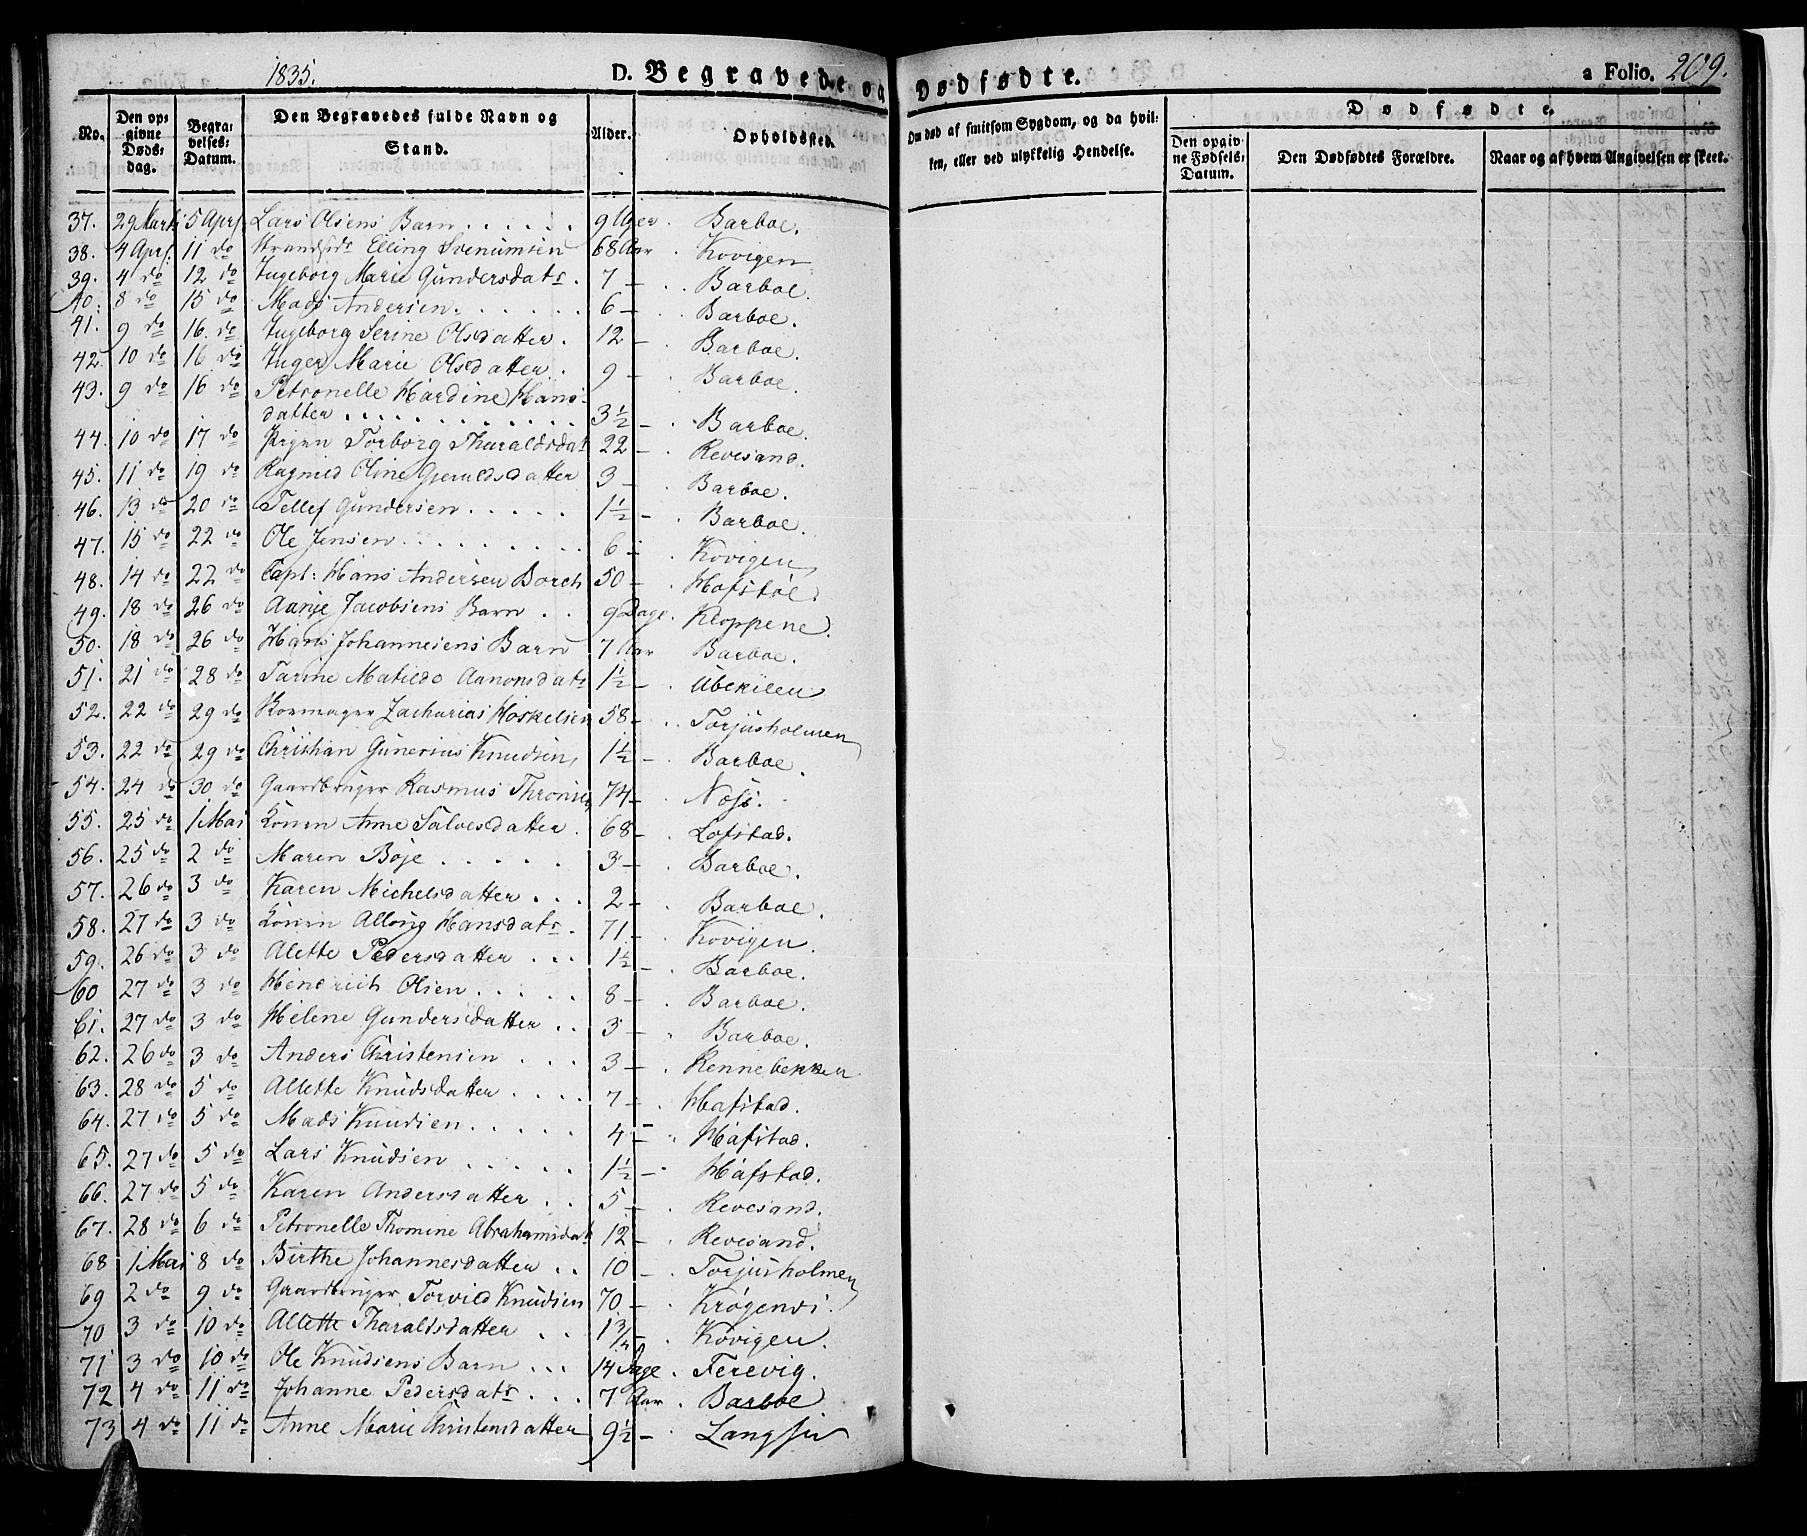 1835.
D. Begravede og Dødfødte.
a Folio. 209.
No.
Den opgivne Dødsdag.
Begravelses-Datum.
Den Begravedes fulde Navn og Stand.
Alder.
Opholdssted.
Om død af smitsom Sygdom, og da hvilken, eller ved ulykkelig Hendelse.
Dødfødte.
Den opgivne Fødsels-Datum.
Den Dødfødtes Forældre.
Naar og af hvem Angivelsen er skeet.
37. 29 Marts 5 Apr. Lars Olsens Barn 9 Uger Barboe.
38. 4 Apr. 11 do Elling Svenumsen 68 Aar Kovigen
39. 4 do 12 do Ingeborg Marie Gundersdatr. 7 — Barboe
40. 8 do 15 do Mads Andersen 6 — Barboe.
41. 9 do 16 do Ingeborg Serine Olsdatter 12 — Barboe.
42. 10 do 16 do Inger Marie Olsdatter 9 — Barboe.
43. 9 do 16 do Petronelle Hardine Hans-
datter 3½ — Barboe.
44. 10 do 17 do Jørgen Torborg Tharaldsdat 22 — Revesand.
45. 11 do 19 do Ragnild Oline Gjeruldsdatter 3 — Barboe.
46. 13 do 20 do Tellef Gundersen 1½ — Barboe.
47. 15 do 22 do Ole Jensen 6 — Kovigen
48. 14 do 22 do Capt: Hans Andersen Borch 50 — Hofstøl
49. 18 do 26 do Aanje Jacobsens Barn 9 Dage Kloppene.
50. 18 do 26 do Hans Johannesens Barn 7 Aar Barboe.
51. 21 do 28 do Tarine Matilde Aanonsdatr 1½ — Ubekilen
52. 22 do 29 do Zacharias 58 — Torjusholmen
53. 22 do 29 do Christian Gunerius Knudsen 1½ — Barboe
54. 24 do 30 do Gaardbruger Rasmus 74 — Nøsi.
55. 25 do 1 Mai Konen Anne Salvesdatter 68 — Lofstad.
56. 25 do 2 do Maren Boje 3 — Barboe.
57. 26 do 3 do Karen Michelsdatter 2 — Barboe.
58. 27 do 3 do Konen Alloug Hansdatr. 71 — Kovigen
59. 26 do 3 do Alette Pedersdatter 1½ — Barboe.
60 27 do 3 do Hendrich Olsen 8 — Barboe.
61. 27 do 3 do Helene Gundersdatter 3 — Barboe.
62. 26 do 3 do Anders Christensen 3 — Rennebekken
63. 28 do 5 do Allette Knudsdatter 7 — Hafstad.
64. 27 do 5 do Mads Knudsen 4 — Hafstad.
65. 27 do 5 do Lars Knudsen 1½ — Hafstad.
66. 27 do 5 do Karen Andersdatter 5 — Revesand.
67. 28 do 6 do Petronelle Thomine Abrahamsdat 12 — Revesand.
68 1 Mai 8 do Birthe Johannesdatter 10 — Torjusholmen
69 2 do 9 do Gaardbruger Torvild Knudsen 70 — Krøgenes.
70 3 do 10 do Allette Tharaldsdatter 1¾ — Kovigen.
71 3 do 10 do Ole Knudsens Barn 14 Dage Ferevig.
72 4 do 11 do Johanne Pedersdatr 7 Aar Barboe
73 4 do 11 do Anne Marie Christensdatter 9½ — Langsev